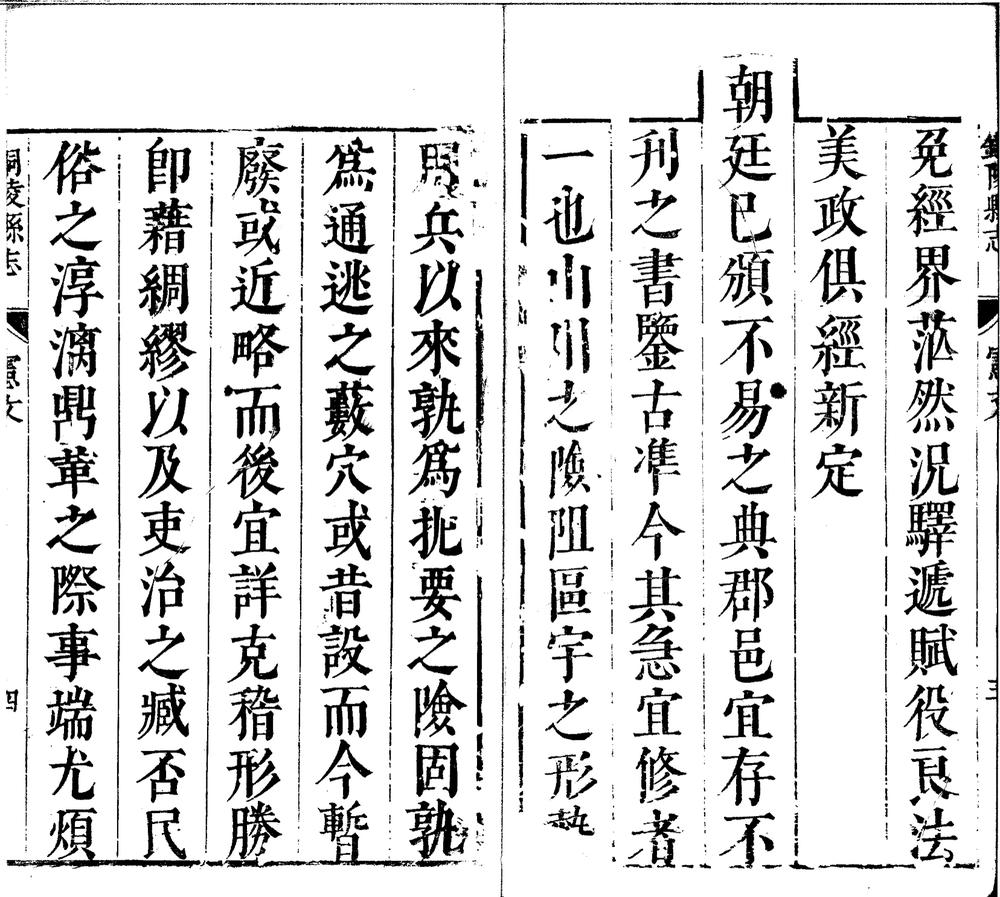 銅陵縣志 憲文 三
免經界茫然況驛遞賦役良法
美政俱經新定
朝廷已頒不易之典郡邑宜存不
刋之書鑒古凖今其急宜修者
一也山川之險阻區宇之形埶
用兵以來孰爲扼要之險固孰
爲通逃之藪穴或昔設而今暫
廢或近略而後宜詳克稽形勝
卽藉綢繆以及吏治之臧否民
俗之淳漓鼎革之際事端尤煩
銅陵縣志 憲文 四